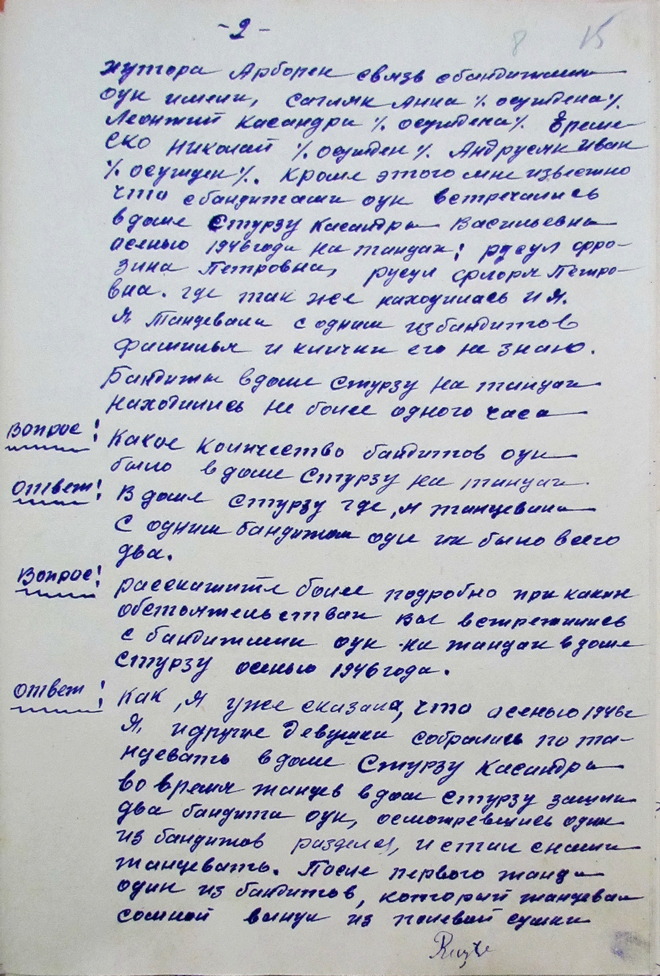 -2-
8 15
хутора Арборен связь с бандитами
оун имели, Сагиян Анна % осуждена%
Леонтий Касандра % осуждена% Ереме-
ско Николай % осужден% Андрусяк Иван
% осужден%. Кроме этого мне известно
что с бандитами оун встречались
в доме Стурзу Касандры Васильевны
осенью 1946 года на танцах: русул фро-
зина Петровна, русул флоря Петро-
вна. где так же находилась и я.
Я танцевала с одним из бандитов
фамилья и клички его не знаю.
Бандиты в доме Стурзу на танцах
находились не более одного часа
Вопрос: Какое количество бандитов оун
было в доме Стурзу на танцах.
Ответ: В доме Стурзу где, я танцевала
с одним бандитом оун их было всего
два.
Вопрос: расскажите более подробно при каких
обстоятельствах Вы встретились
с бандитами оун на танцах в доме
Стурзу осенью 1946 года.
Ответ: Как, я уже сказала, что осенью 1946 г
Я, и другие девушки собрались по та-
нцевать в доме Стурзу Касандры
во время танцев в дом Стурзу зашли
два бандита оун, осмотревшись один
из бандитов разделся, и стал с нами
танцевать. После первого танца
один из бандитов, который танцевал
сомной вынул из полевой сумки